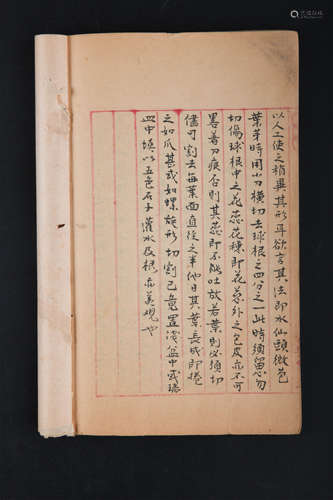 以人工使之稍異其形耳欲言其法即水仙頭微芭
葉芽時用小刀橫切去球根之四分之一此時須留心勿
切傷球根中之花蕊花穗即花蕊外之包皮亦不可
畧着刀痕否則其蕊即不能吐放若葉則必須切
儘可割去每葉面直徑之半他日其葉長成即捲
之如爪甚或如螺旋形切割已竟置淺盆中或磁
皿中填以五色石子灌水及根亦美觀也